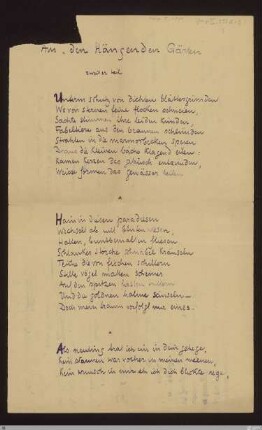 Aus: den Hängenden Gärten
zweiter teil
Unterm schutz von dichten blättergründen
Wo von sternen feine flocken schneien,
Sachte stimmen ihre leiden künden,
Fabeltiere aus den braunen schlünden
Strahlen in die marmorbecken speien
Draus die kleinen bäche klagend eilen:
Kamen kerzen das gebüsch entzünden,
Weisse formen das gewässer teilen.
Hain in diesen paradiesen
Wechselt ab mit blütenwiesen,
Hallen, buntbemalten fliesen
Schlanker störche schnäbel kräuseln
Teiche die von fischen schillern
vögel matten
Auf den spitzen
Und die goldnen halme säuseln –
Doch mein traum verfolgt nur eines.
Als neuling trat ich ein in dein gehege,
Kein staunen war vorher in meinen mienen,
Kein wunsch in mir eh ich dich blickte rege,